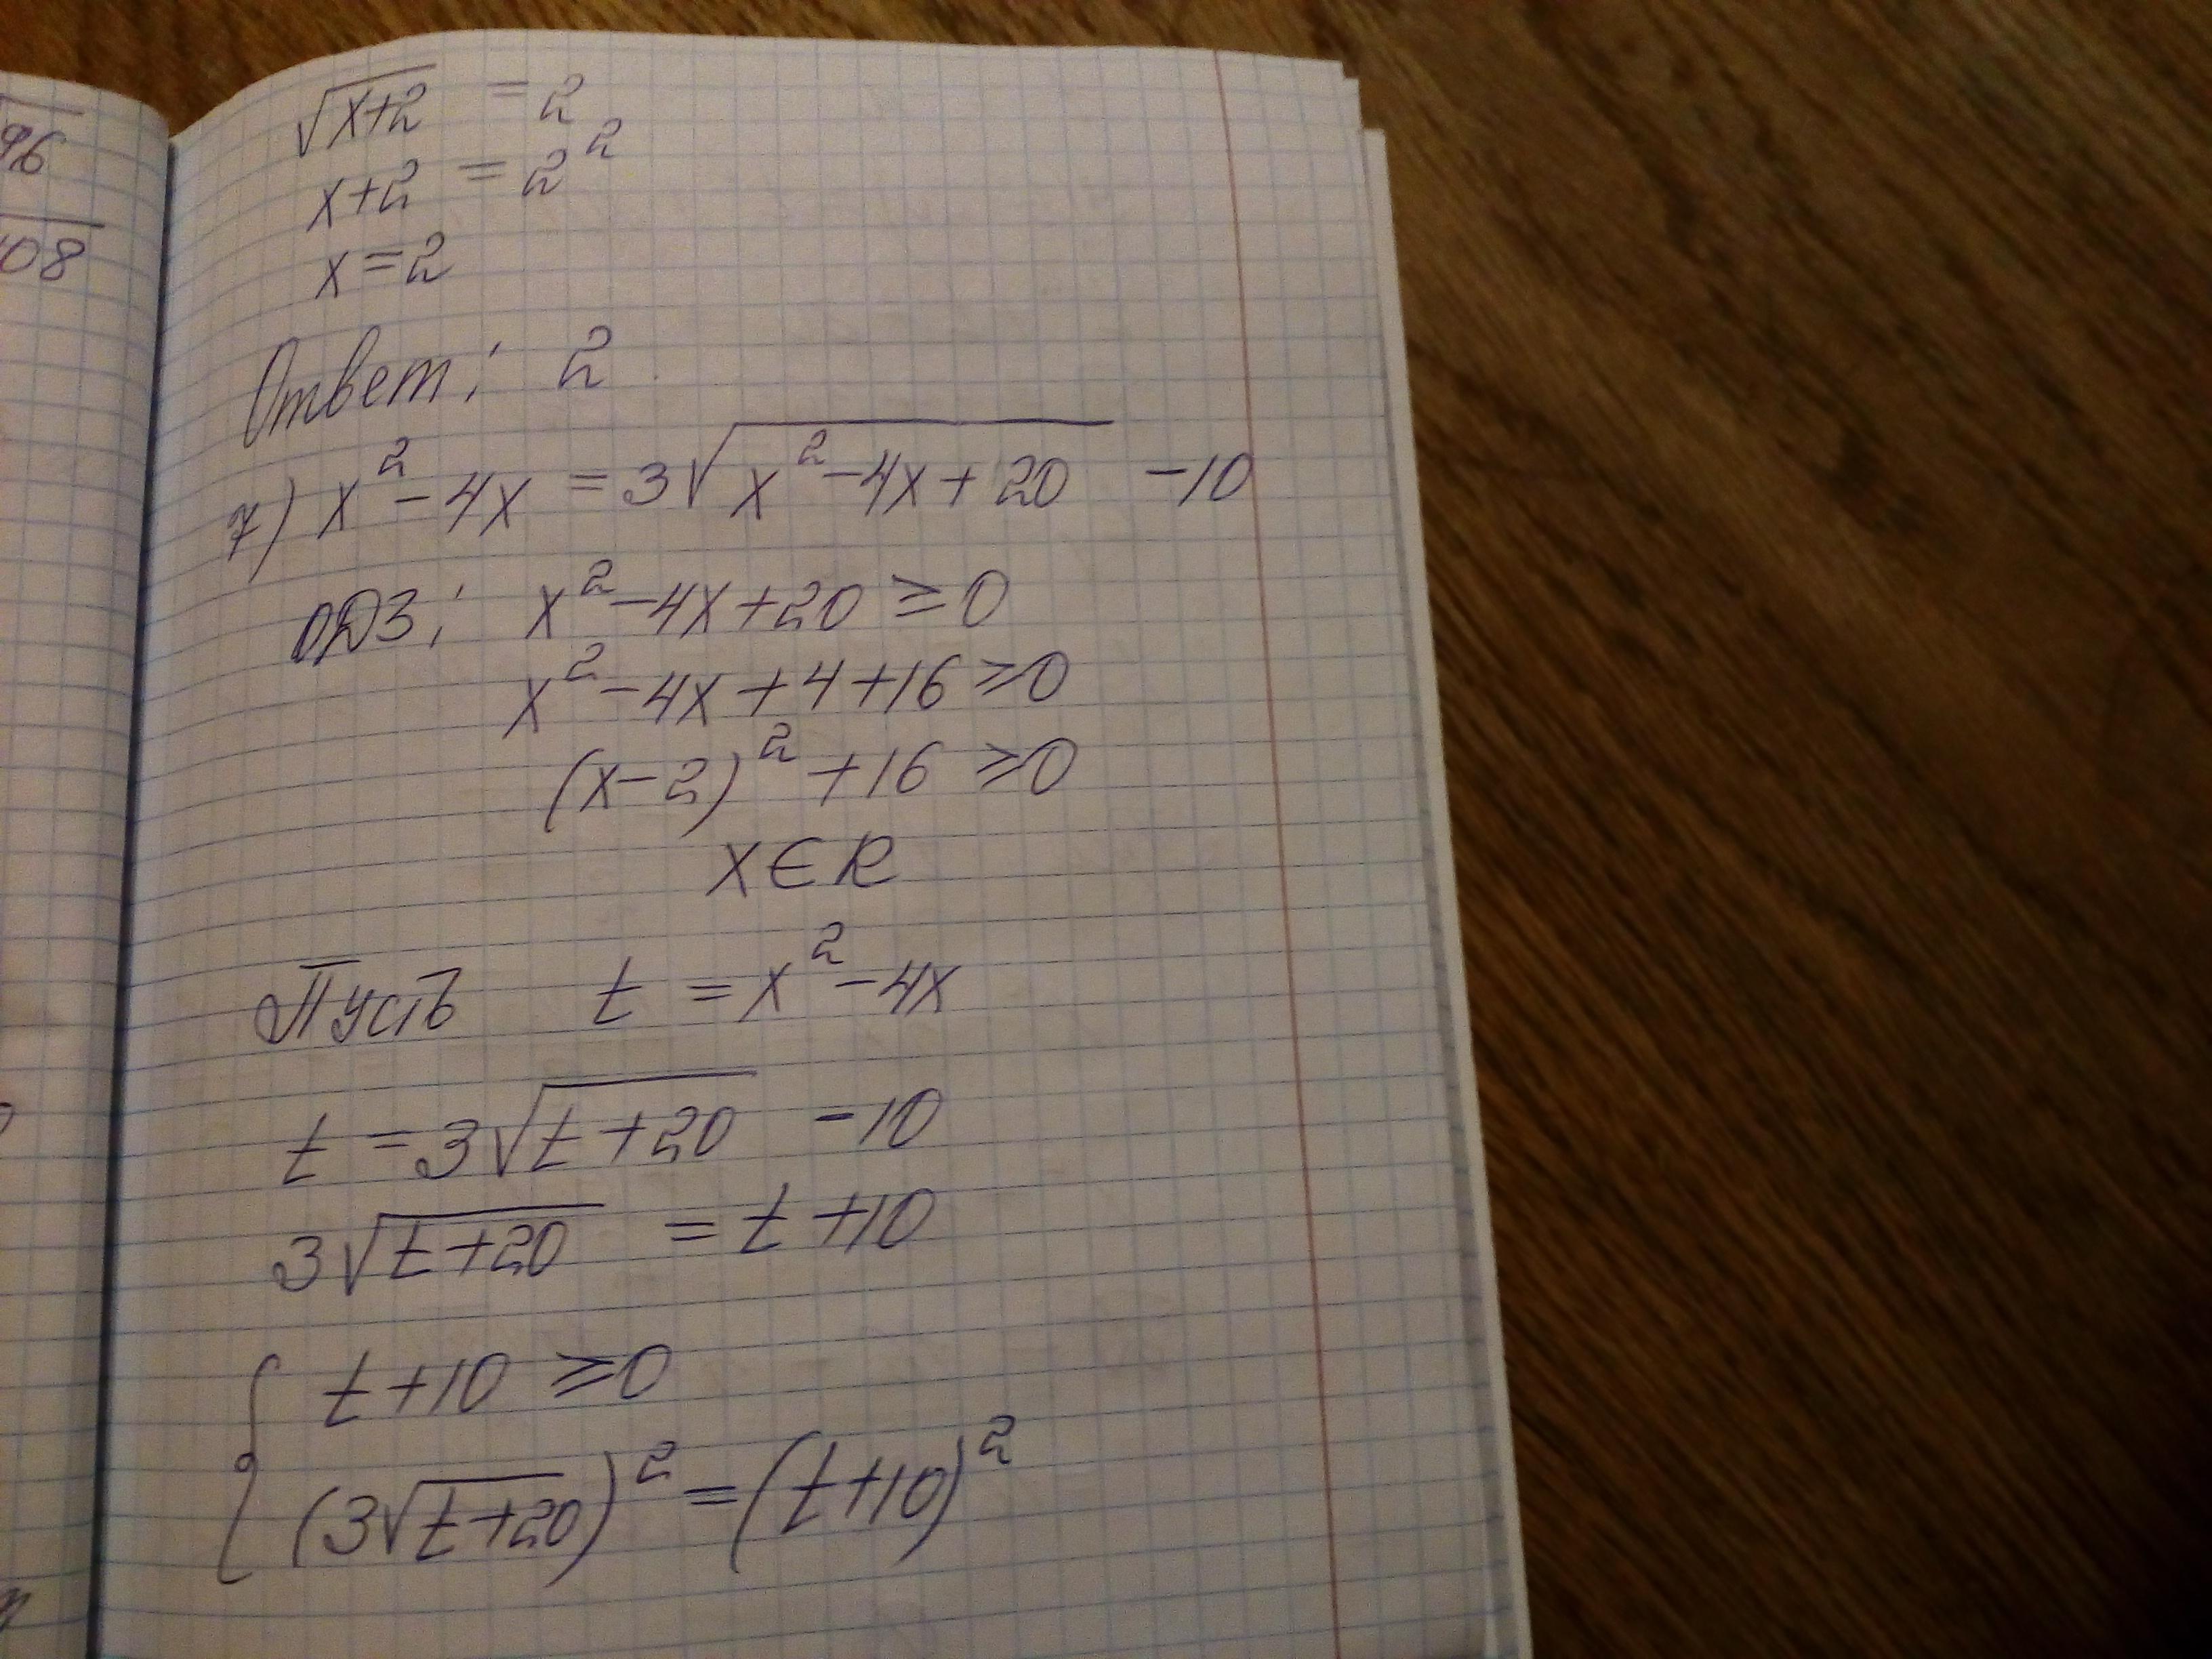 96
08
√(x+2) = 2
x+2 = 2²
x=2
Ответ: 2
7) x²-4x = 3√(x²-4x+20) -10
ОДЗ: x²-4x+20 ≥0
x²-4x+4+16≥0
(x-2)²+16 ≥0
x∈R
Пусть t = x²-4x
t = 3√(t+20) -10
3√(t+20) = t+10
{ t+10 ≥0
(3√(t+20))² = (t+10)²